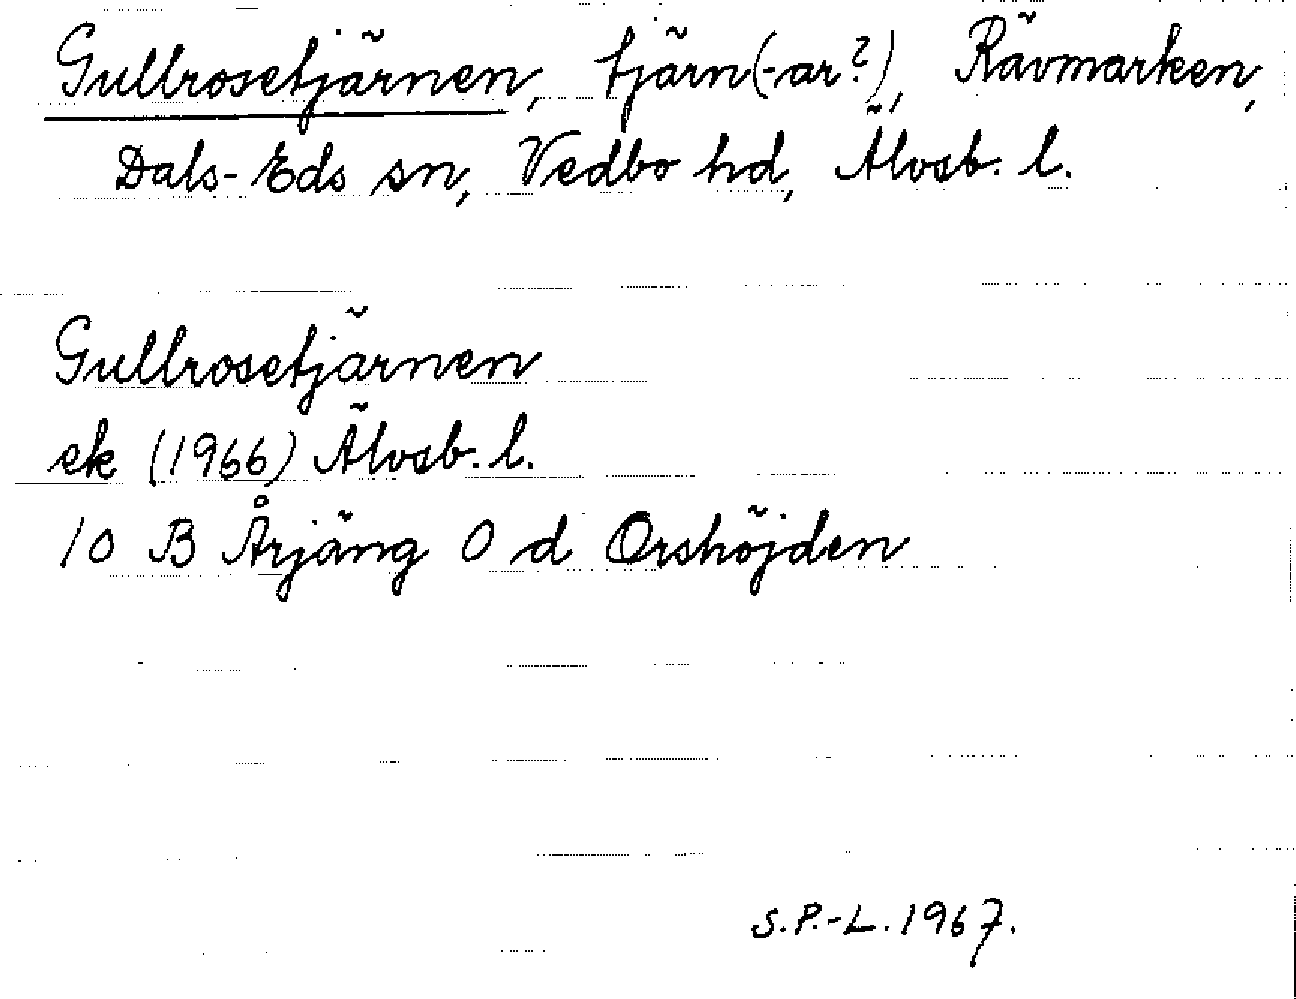 Gullrosetjärnen, tjärn(-ar?), Rävmarken,
Dals-Eds sn, Vedbo hd, Älvsb. l.
Gullrosetjärnen
ek (1966) Älvsb. l.
10 B Årjäng 0 d Orshöjden
S.P.-L. 1967.